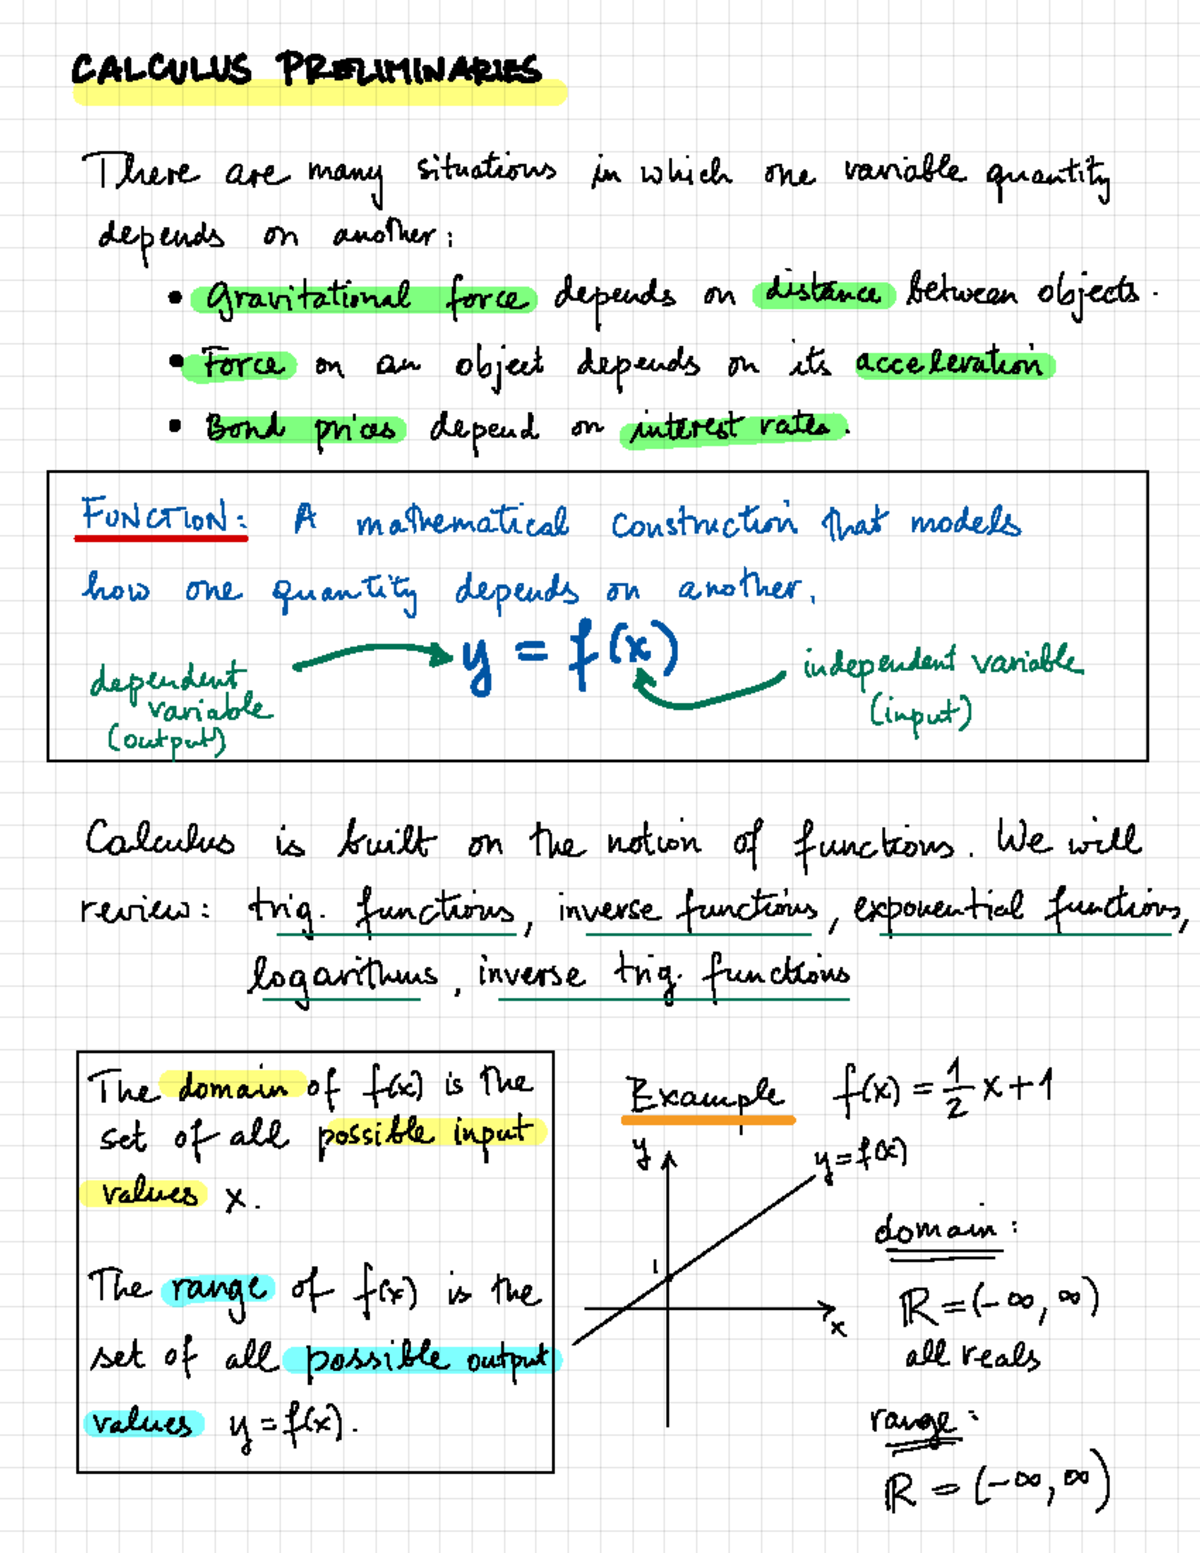 CALCULUS PRELIMINARIES
There are many situations in which one variable quantity
depends on another:
• Gravitational force depends on distance between objects.
• Force on an object depends on its acceleration
• Bond prices depend on interest rates.
FUNCTION: A mathematical construction that models
how one quantity depends on another.
y = f(x)
dependent
variable
(output)
independent variable
(input)
Calculus is built on the notion of functions. We will
review: trig. functions, inverse functions, exponential functions,
logarithms, inverse trig. functions
The domain of f(x) is the
set of all possible input
values x.
The range of f(x) is the
set of all possible output
values y = f(x).
Example f(x) = 1/2 x + 1
y
y = f(x)
1
x
domain:
ℝ = (-∞, ∞)
all reals
range:
ℝ = (-∞, ∞)